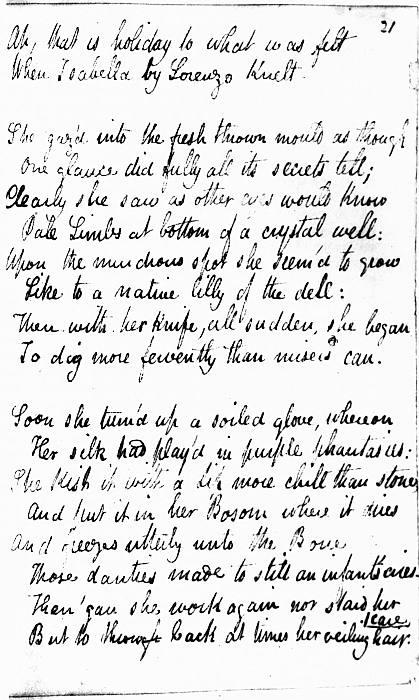 21
Ah, that is holiday to what was felt
When Isabella by Lorenzo knelt.
She gaz'd into the fresh thrown mould as though
One glance did fully all its secrets tell;
Clearly she saw as other eyes would know
Pale Limbs at bottom of a crystal well:
Upon the murdrous spot she seem'd to grow
Like to a native lilly of the dell:
Then with her knife, all sudden, she began
To dig more fervently than misers can.
Soon she turn'd up a soiled glove, whereon
Her silk had play'd in purple phantasies:
She kist it with a Lip more chill than stone,
And put it in her Bosom where it dries
And freezes utterly unto the Bone
Those danties made to still an infants cries
Then 'gan she work again nor staid her
care
But to through back at times her veiling hair.